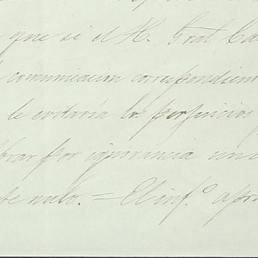 que si el H. Gral Ca
comunicacion correspondient
le evitaría los perjuicios
brar por ignorancia un c
te nulo. = El inf.º apro